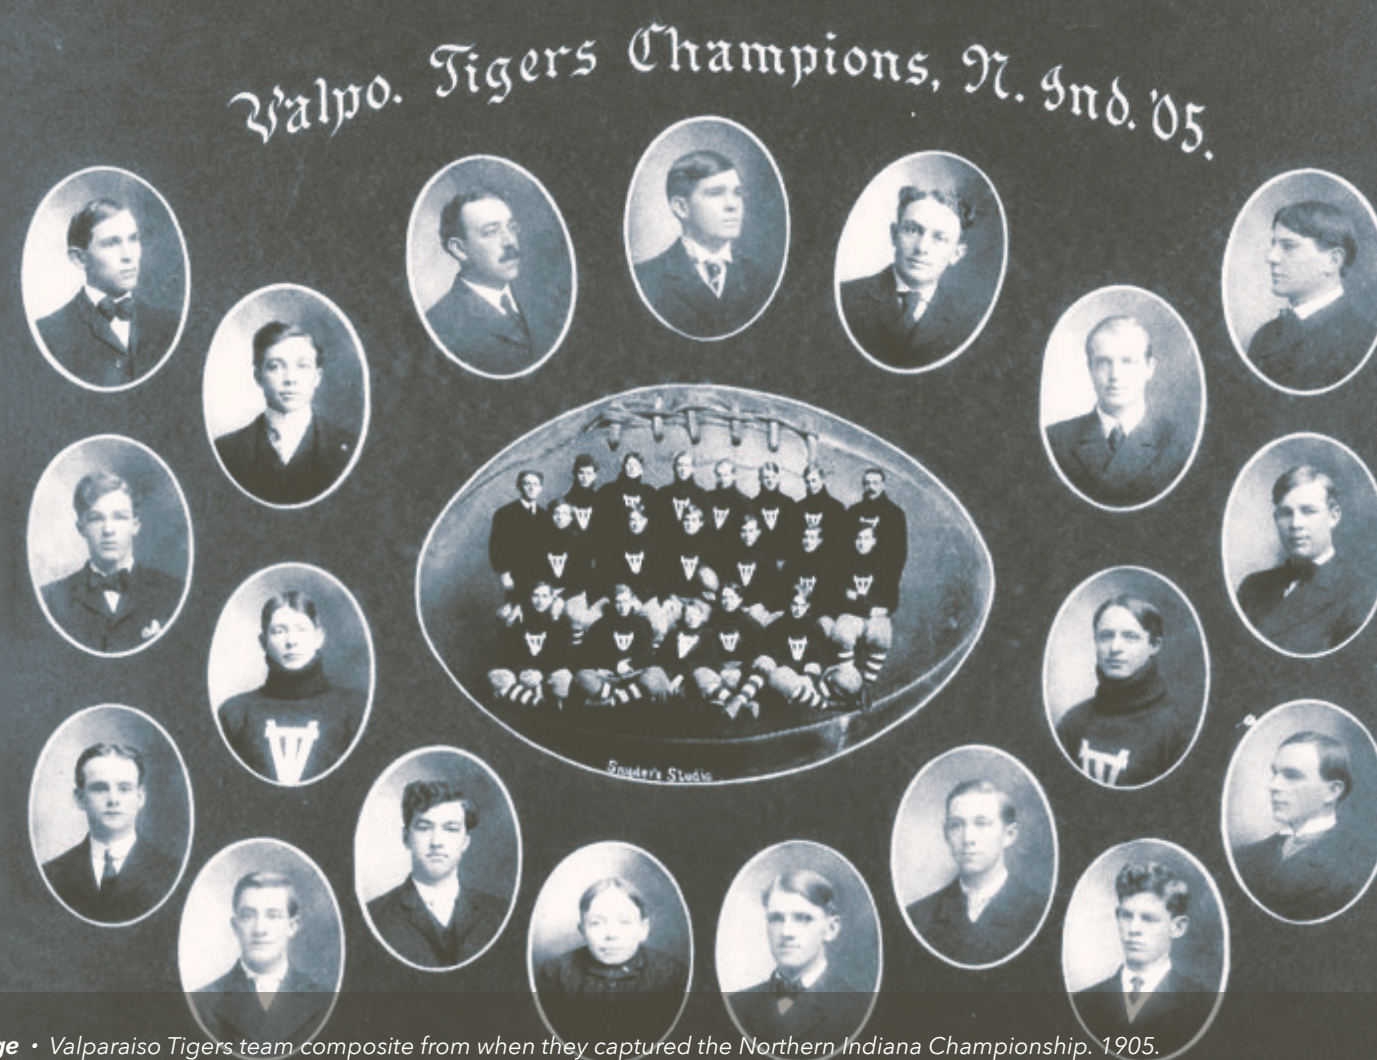 Valpo. Tigers Champions, N. Ind. '05.
Snyder's Studio
ge • Valparaiso Tigers team composite from when they captured the Northern Indiana Championship. 1905.